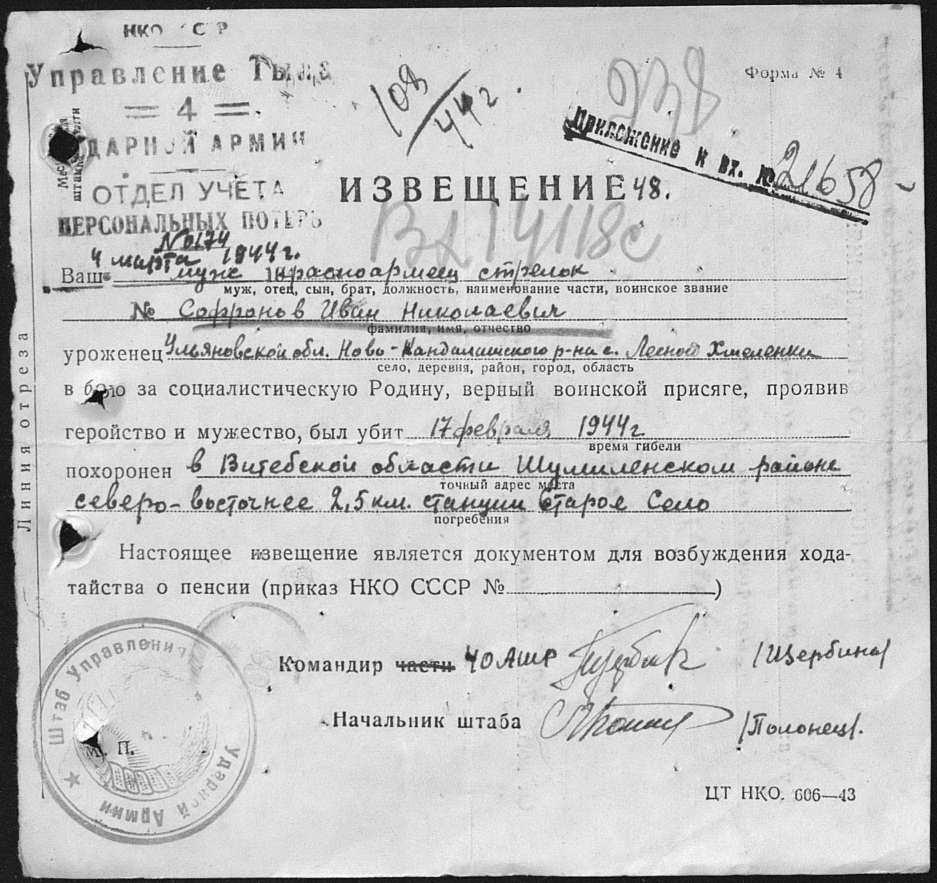 НКО СССР
Управление Тыла
= 4 =
УДАРНОЙ АРМИИ
ОТДЕЛ УЧЕТА
ПЕРСОНАЛЬНЫХ ПОТЕРЬ
№ 0174
4 марта 1944 г.
108/44 г.
938
Форма № 4
Приложение к вх. № 21658
48.
ИЗВЕЩЕНИЕ
Вл 14118с
Ваш муж красноармеец стрелок
муж, отец, сын, брат, должность, наименование части, воинское звание
№ Софронов Иван Николаевич
фамилия, имя, отчество
уроженец Ульяновской обл. Ново-Кандалинского р-на с. Лесной Хмеленки
село, деревня, район, город, область
в бою за социалистическую Родину, верный воинской присяге, проявив
геройство и мужество, был убит 17 февраля 1944 г
время гибели
похоронен в Витебской области Шумиленском районе
точный адрес места
северо-восточнее 2,5 км. станции Старое Село
погребения
Настоящее извещение является документом для возбуждения хода-
тайства о пенсии (приказ НКО СССР №)
Командир части 40 АШР /Щербина/
Начальник штаба /Полонец/.
М. П.
Штаб Управления Ударной Армии
ЦТ НКО. 606—43
Линия отреза